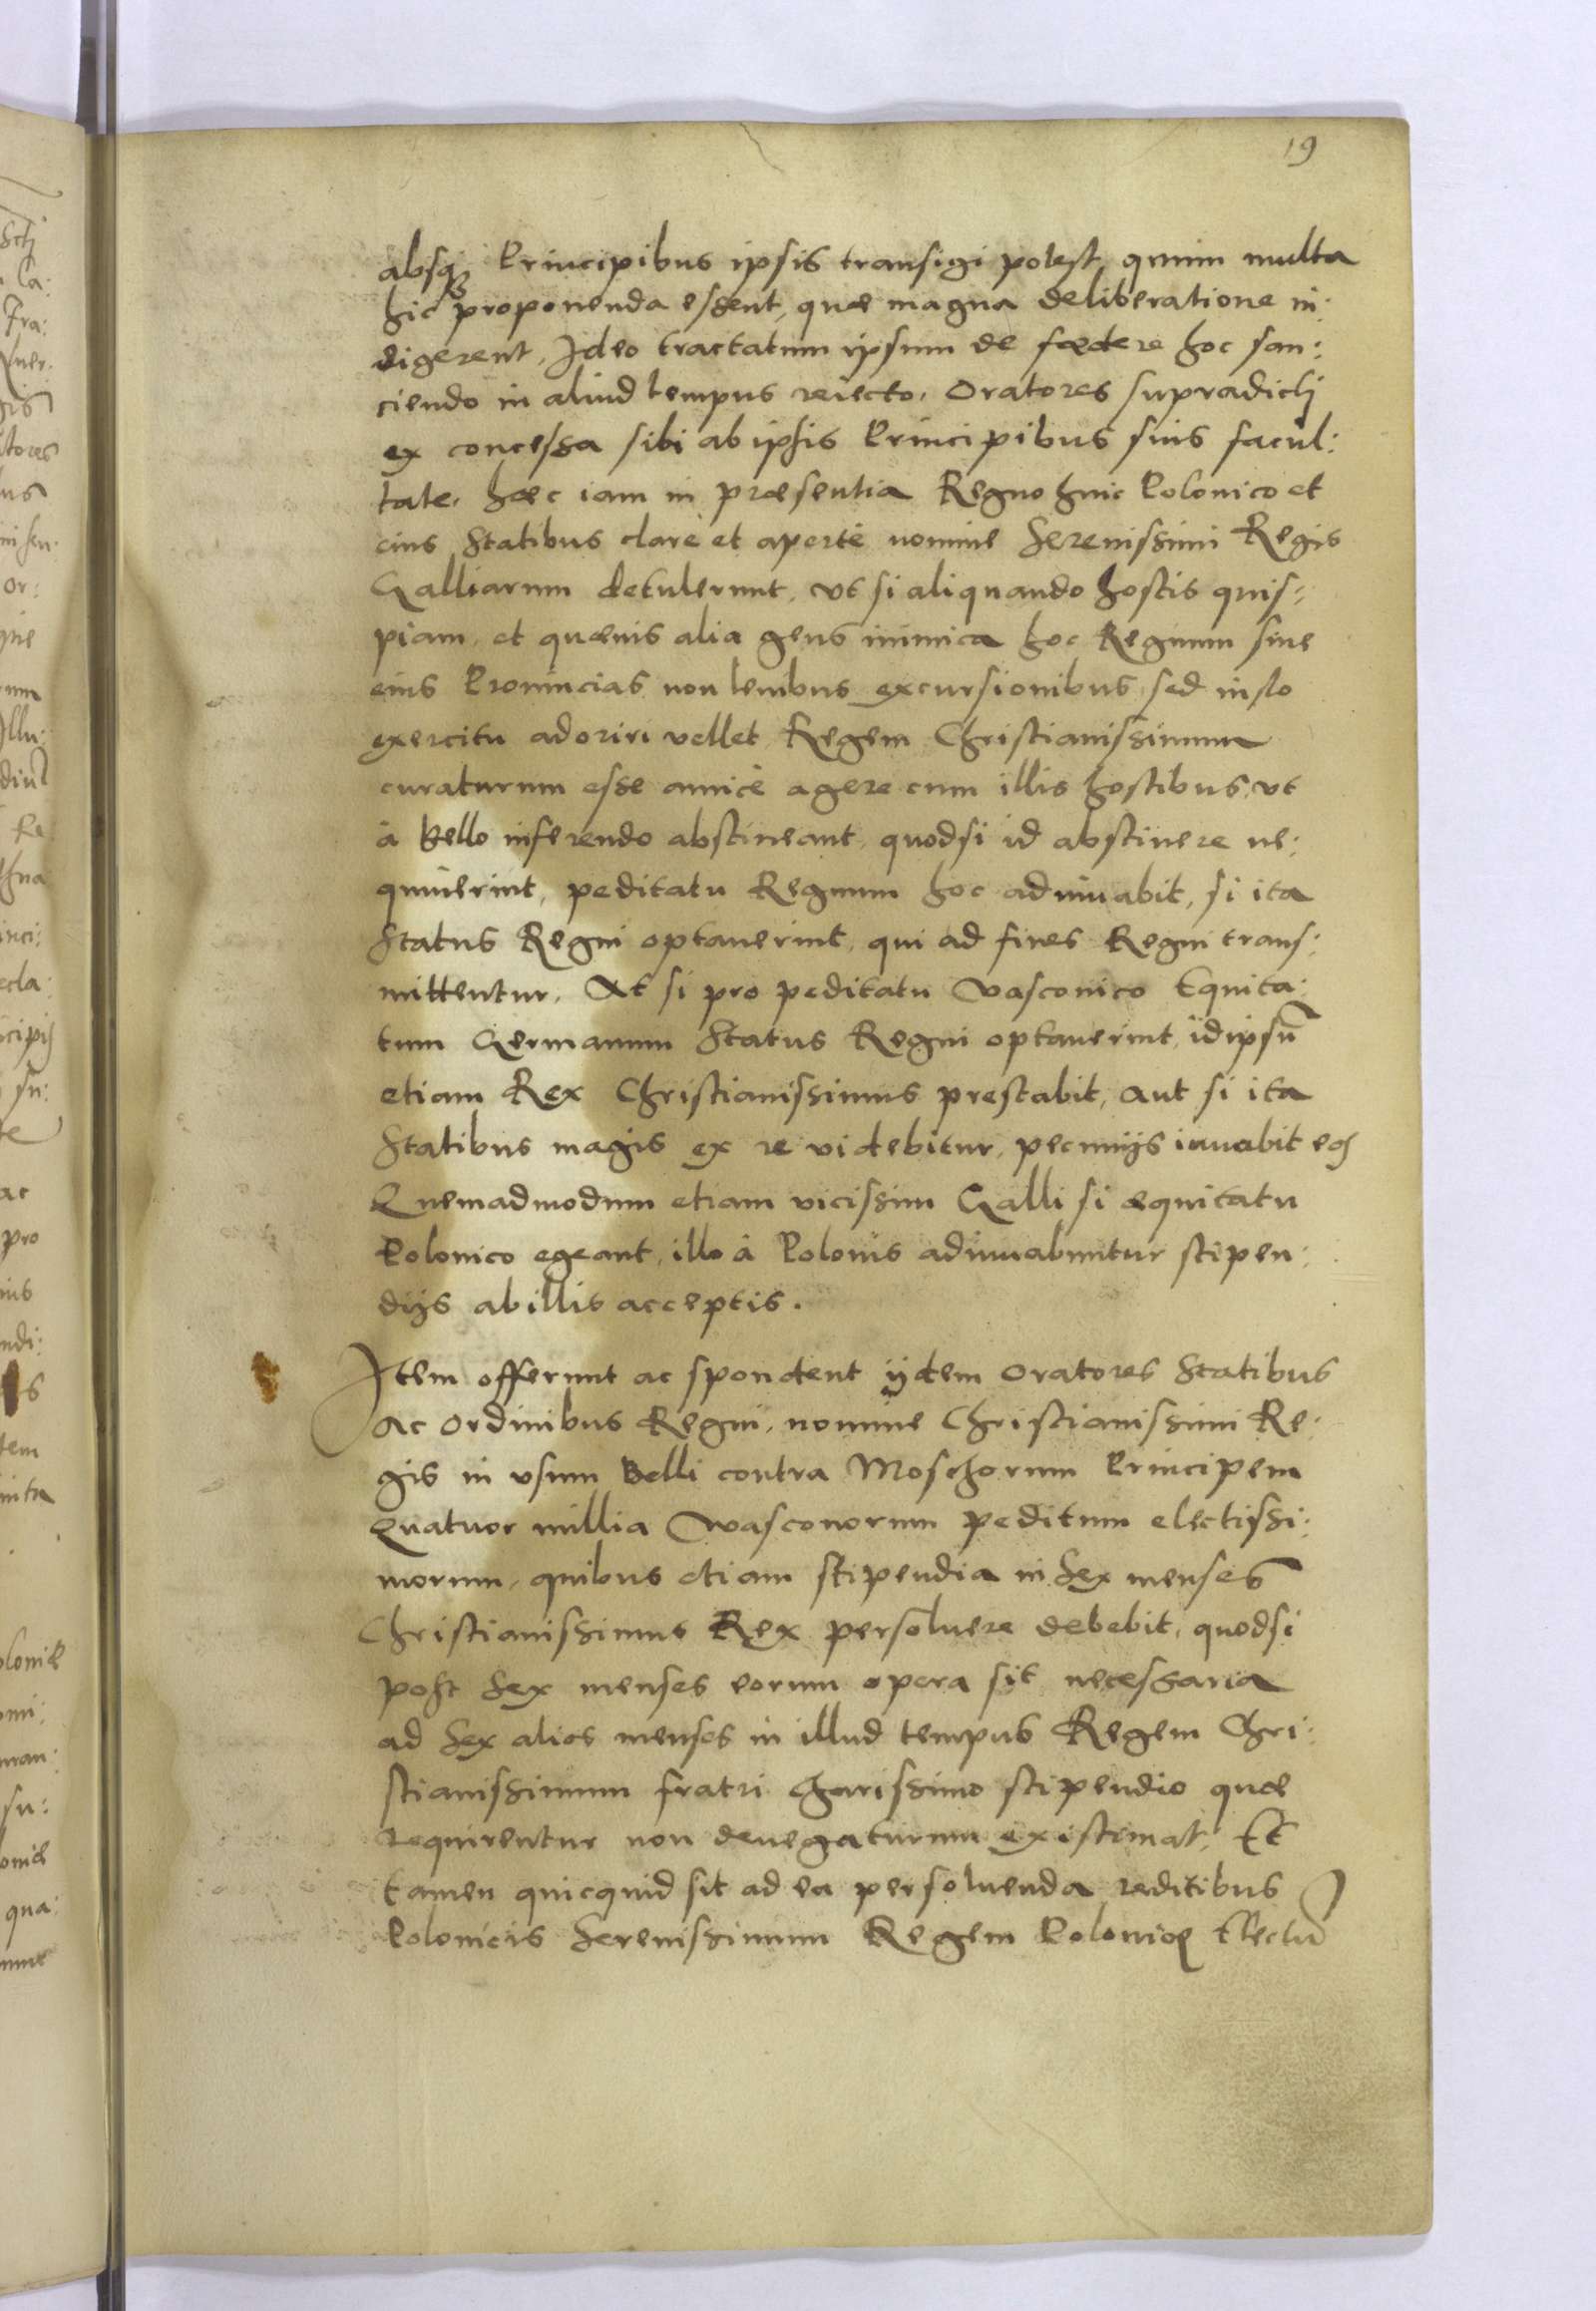 19
absq; Principibus ipsis transigi potest, quum multa
hic proponenda essent, quæ magna deliberatione in:
digerent. Ideo tractatum ipsum de fœdere hoc san:
ciendo in aliud tempus reiecto. Oratores supradicti
ex concessa sibi ab ipsis Principibus suis facul:
tate, hæc iam in præsentia Regno huic Polonico et
eius Statibus clarè et apertè nomine Serenissimi Regis
Galliarum detulerunt, vt si aliquando hostis quis:
piam, et quæuis alia gens inimica hoc Regnum siue
eius Prouincias non leuibus excursionibus, sed iusto
exercitu adoriri vellet, Regem Christianissimum
curaturum esse amicè agere cum illis hostibus, vt
à bello inferendo abstineant, quodsi id abstinere ne:
quiuerint, peditatu Regnum hoc adiuuabit, si ita
Status Regni optauerint, qui ad fines Regni trans:
mittentur. At si pro peditatu Vasconico Equita:
tum Germanum Status Regni optauerint, idipsũ
etiam Rex Christianissimus prestabit, aut si ita
Statibus magis ex re videbitur, pecunijs iuuabit eos
Quemadmodum etiam vicissim Galli si equitatu
Polonico egeant, illo à Polonis adiuuabuntur stipen:
dijs ab illis acceptis.
Item offerunt ac spondent ijdem Oratores Statibus
ac Ordinibus Regni, nomine Christianissimi Re:
gis in vsum Belli contra Moschorum Principem
Quatuor millia Wasconorum peditum electissi:
morum, quibus etiam stipendia in Sex menses
Christianissimus Rex persoluere debebit, quodsi
post Sex menses eorum opera sit necessaria
ad Sex alios menses in illud tempus Regem Chri:
stianissimum fratri charissimo stipendio quæ
requirentur non denegaturum existimat. Et
tamen quicquid sit ad ea persoluenda reditibus
Polonicis Serenissimum Regem Poloniæ Electũ